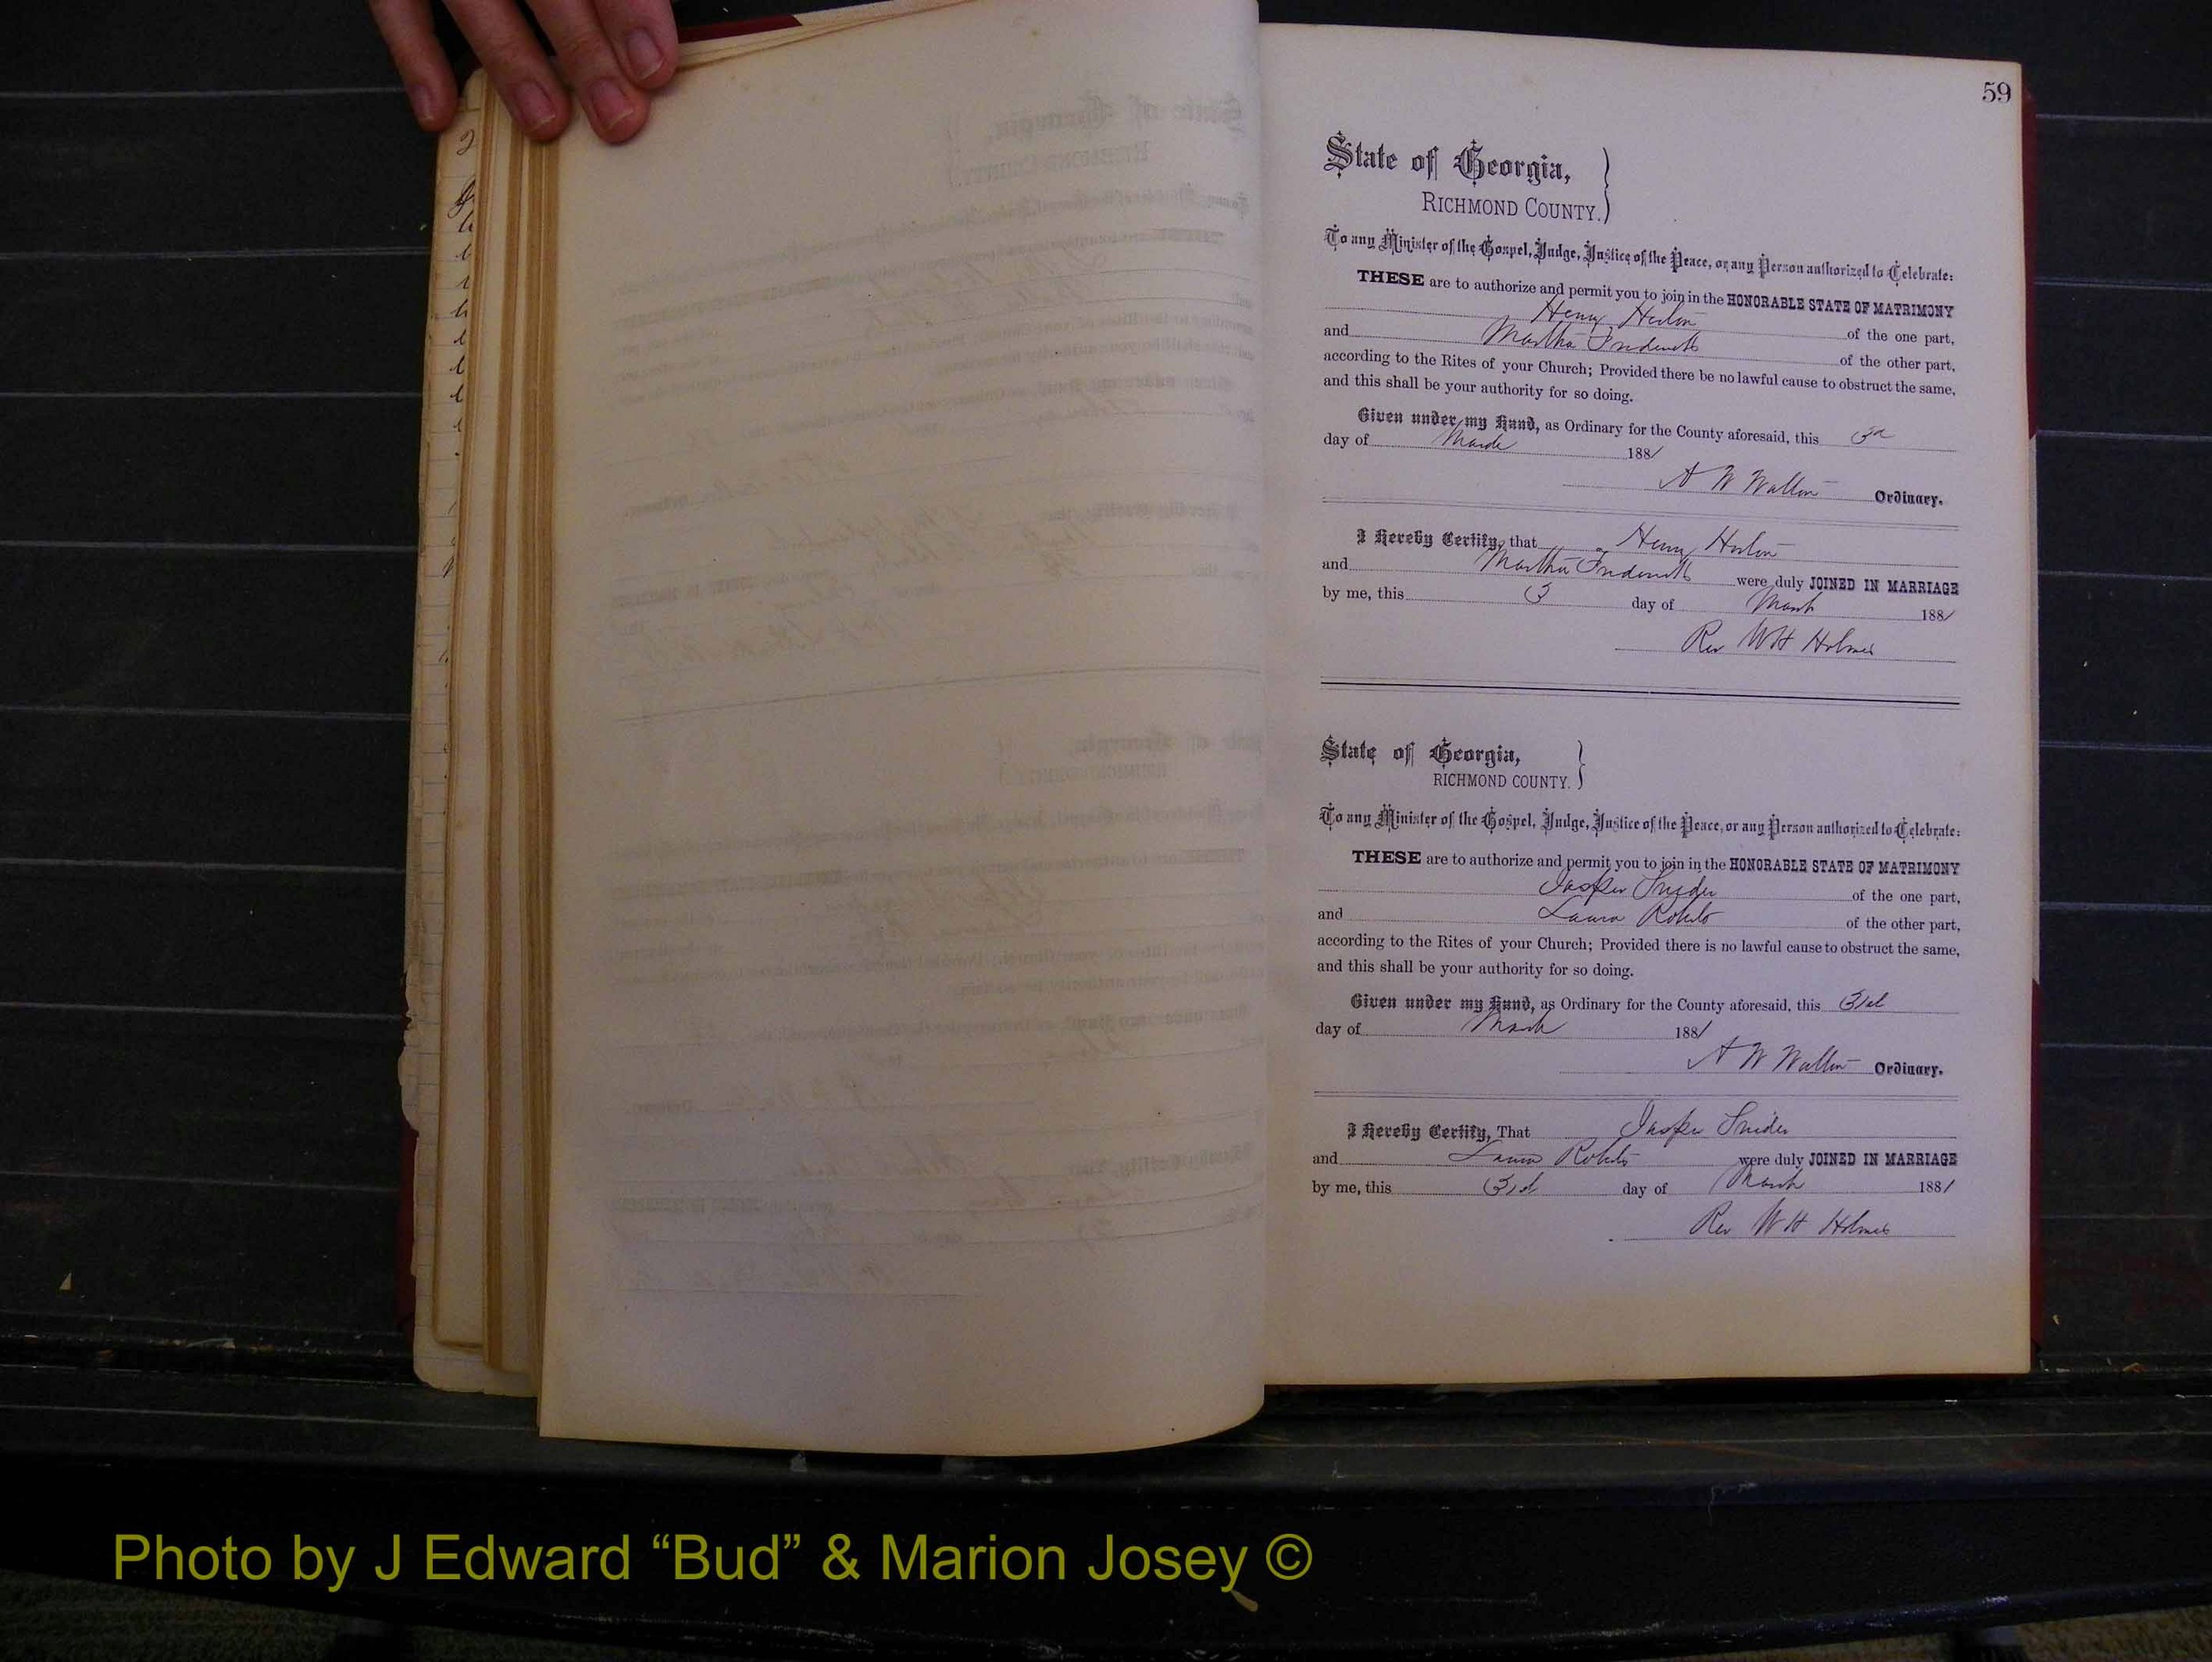 59
State of Georgia,
RICHMOND COUNTY.
To any Minister of the Gospel, Judge, Justice of the Peace, or any Person authorized to Celebrate:
THESE are to authorize and permit you to join in the HONORABLE STATE OF MATRIMONY
Henry of the one part,
and Martha of the other part,
according to the Rites of your Church; Provided there be no lawful cause to obstruct the same,
and this shall be your authority for so doing.
Given under my Hand, as Ordinary for the County aforesaid, this 3d
day of March 1881
A W Walton Ordinary.
I Hereby Certify, that Henry
and Martha were duly JOINED IN MARRIAGE
by me, this 3 day of March 1881
Rev WH Holmes
State of Georgia,
RICHMOND COUNTY.
To any Minister of the Gospel, Judge, Justice of the Peace, or any Person authorized to Celebrate:
THESE are to authorize and permit you to join in the HONORABLE STATE OF MATRIMONY
Jasper Snider of the one part,
and Laura Roberts of the other part,
according to the Rites of your Church; Provided there is no lawful cause to obstruct the same,
and this shall be your authority for so doing.
Given under my Hand, as Ordinary for the County aforesaid, this 31st
day of March 1881
A W Walton Ordinary.
I Hereby Certify, That Jasper Snider
and Laura Roberts were duly JOINED IN MARRIAGE
by me, this day of March 1881
Rev W H Holmes
Photo by J Edward “Bud” & Marion Josey ©